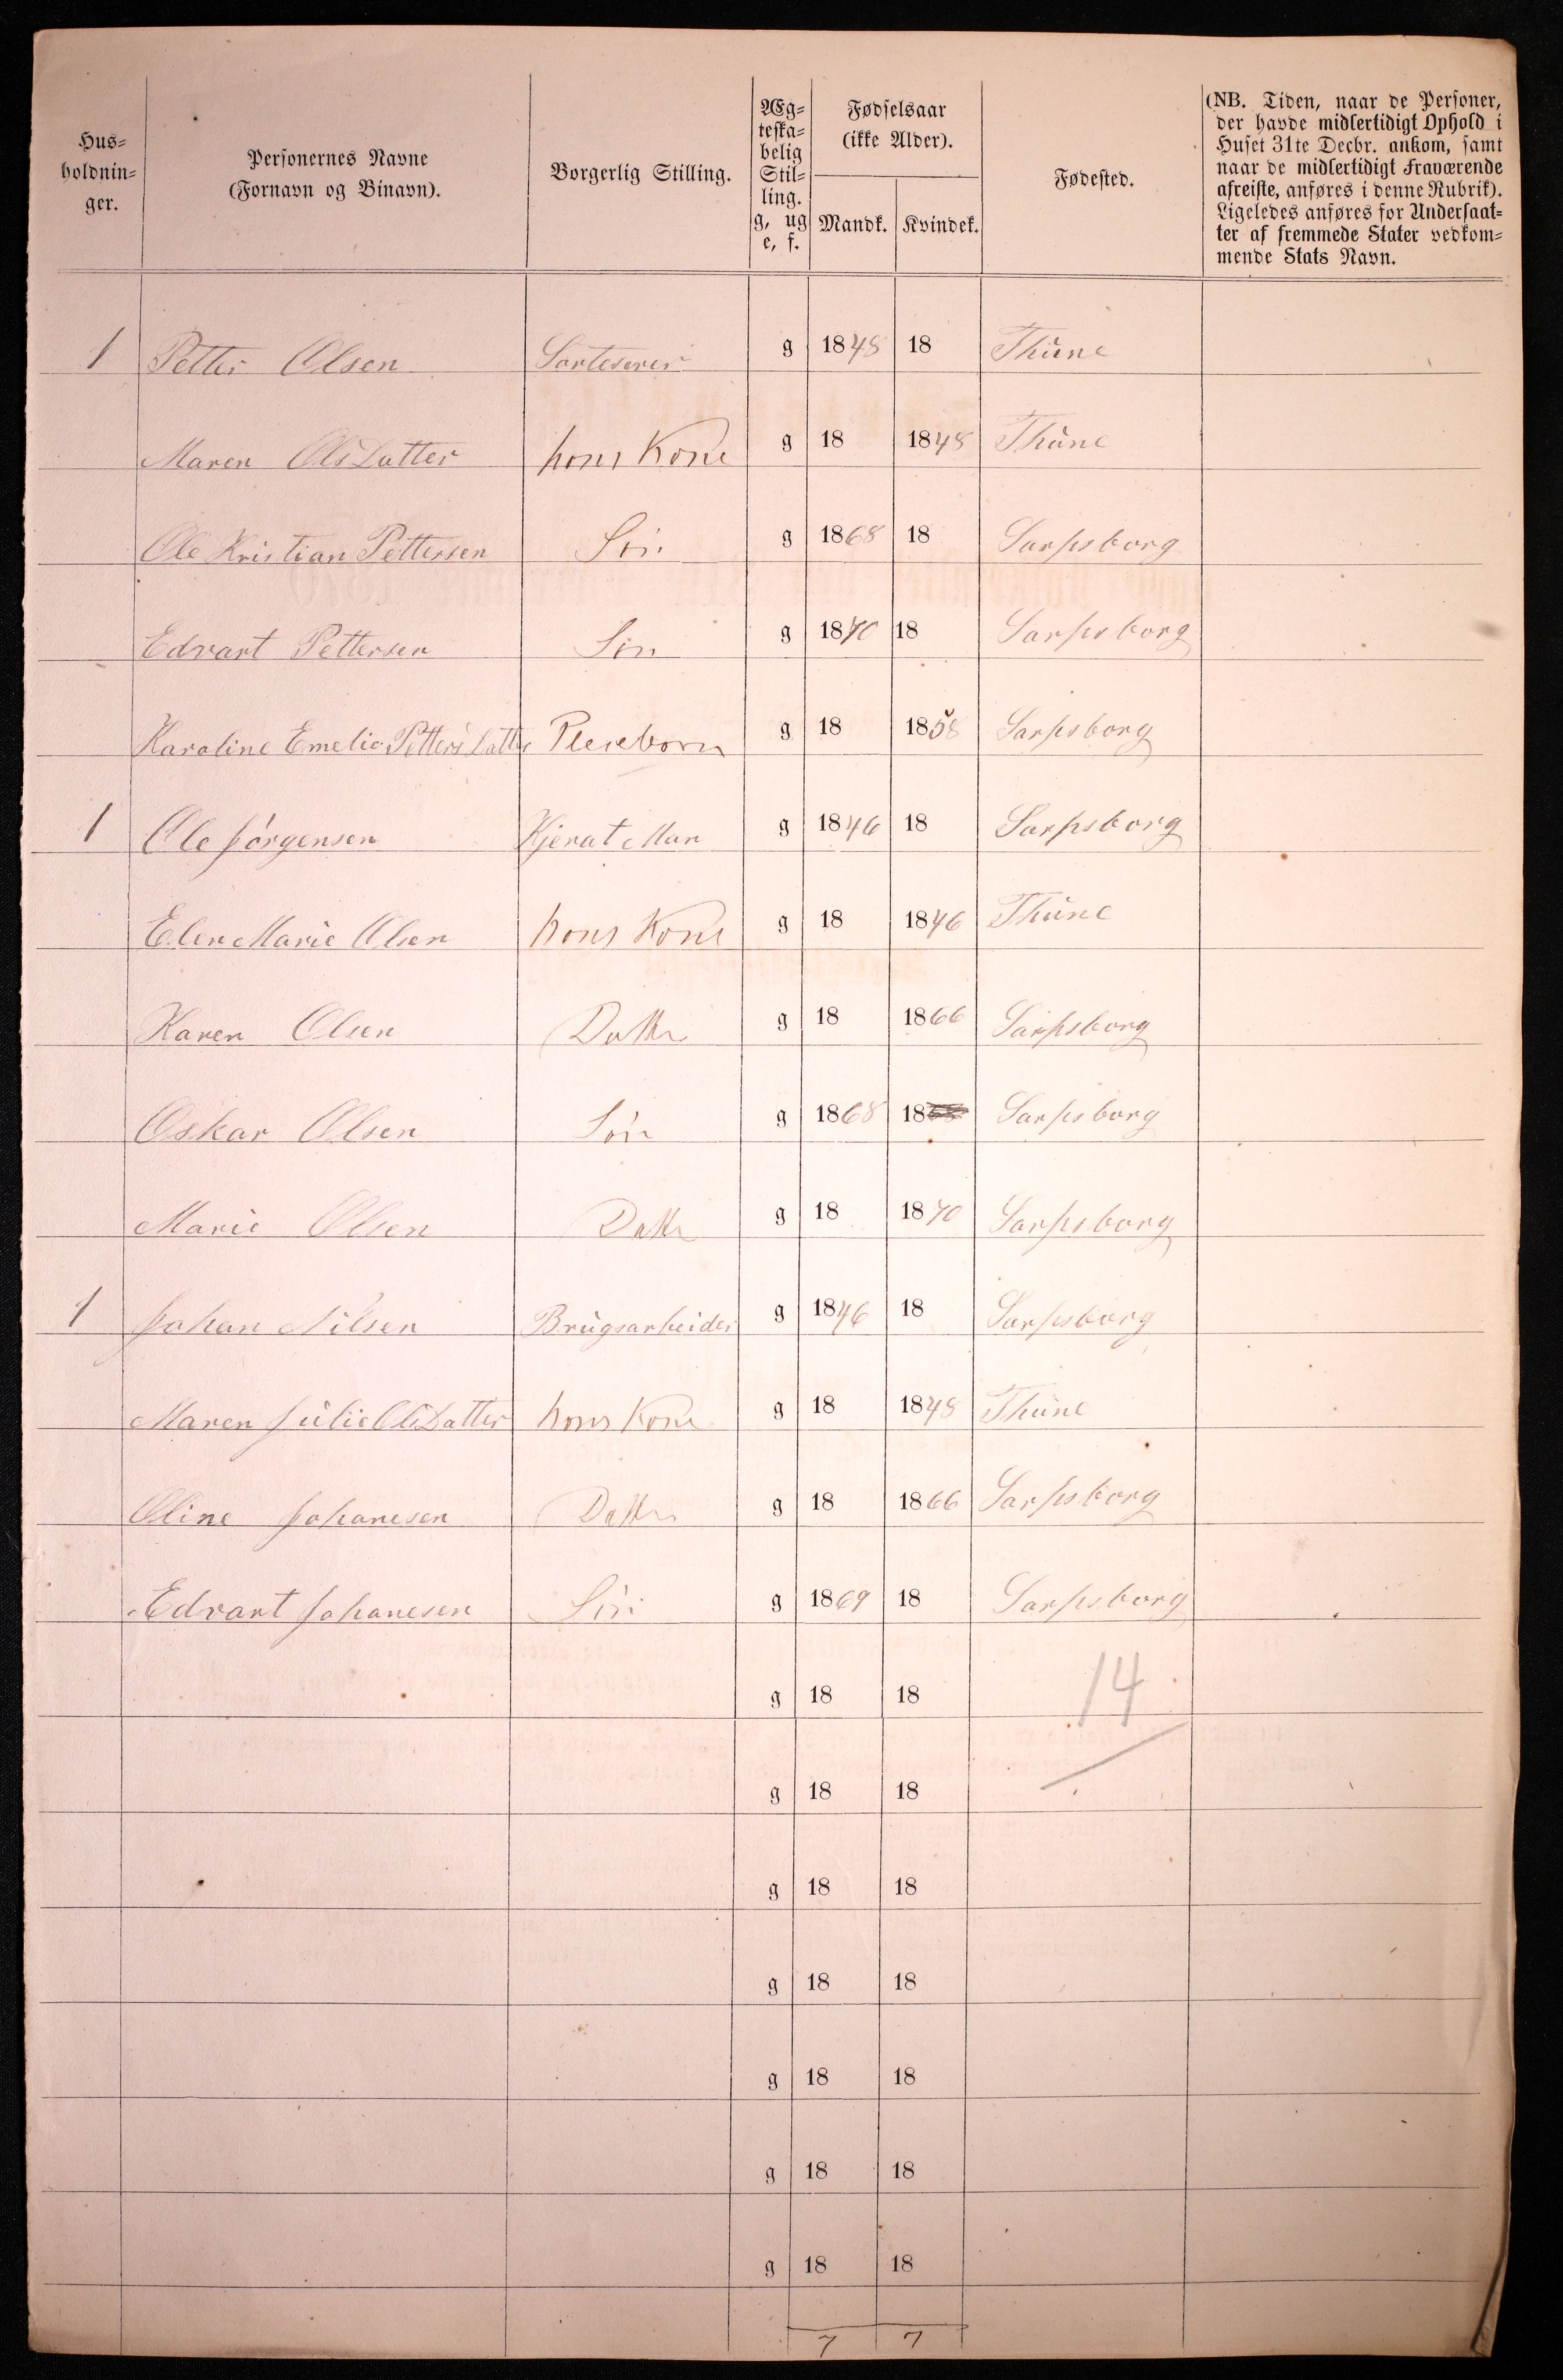 Hus=
holdnin=
ger.
Personernes Navne
(Fornavn og Binavn).
Borgerlig Stilling.
Æg=
teska=
belig
Stil=
ling.
g, ug
e, f.
Fødselsaar
(ikke Alder).
Mandk. Kvindek.
Fødested.
(NB. Tiden, naar de Personer,
der havde midlertidigt Ophold i
Huset 31te Decbr. ankom, samt
naar de midlertidigt Fraværende
afreiste, anføres i denne Rubrik).
Ligeledes anføres for Undersaat=
ter af fremmede Stater vedkom=
mende Stats Navn.
1 Petter Olsen Sorteserer g 1848 18 Thune
Maren OlsDatter hons Kone g 18 1848 Thune
Ole Kristian Pettersen Søn g 1868 18 Sarpsborg
Edvart Pettersen Søn g 1870 18 Sarpsborg
Karoline Emelie PettersDatter Pleiebørn g 18 1858 Sarpsborg
1 Ole Jørgensen Kjørat Man g 1846 18 Sarpsborg
Elen Marie Olsen hons Kone g 18 1846 Thune
Karen Olsen Datter g 18 1866 Sarpsborg
Oskar Olsen Søn g 1868 18 Sarpsborg
Marie Olsen Datter g 18 1870 Sarpsborg
1 Johan Nilsen Brugsarbeider g 1846 18 Sarpsborg
Maren Julie OlsDatter hons Kone g 18 1848 Thune
Oline Johanesen Datter g 18 1866 Sarpsborg
Edvart Johanesen Søn g 1869 18 Sarpsborg
g 18 18 14
g 18 18
g 18 18
g 18 18
g 18 18
g 18 18
g 18 18
7 7